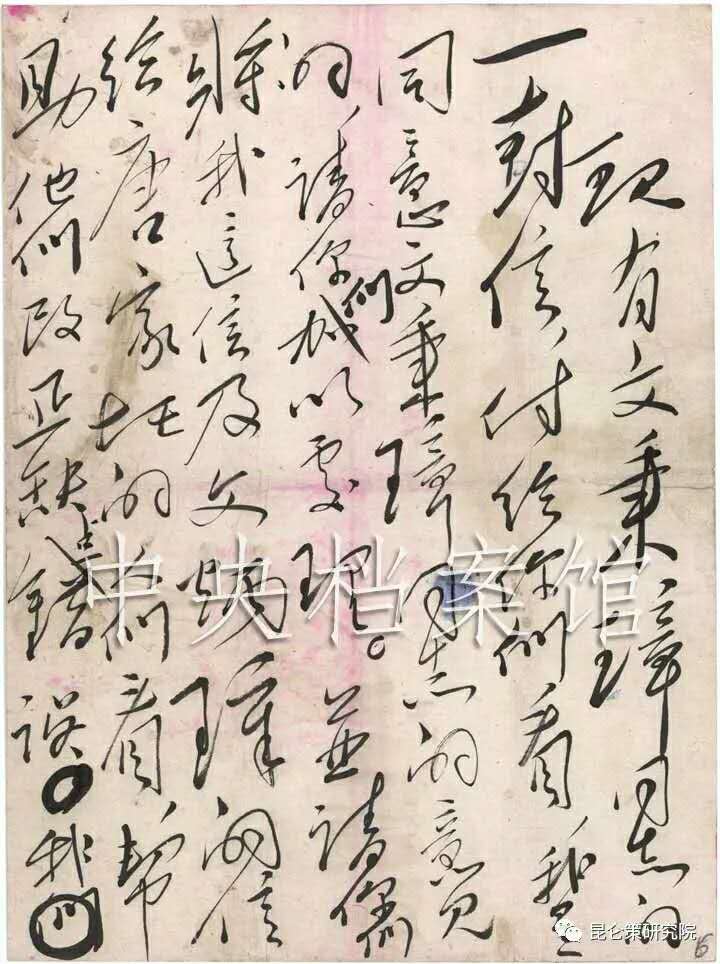 现有文秉璋同志的
一封信，付给你们看，我是
同意文秉璋同志的意见
的，請你们加以处理。並請你们
将我这信及文炳璋的信
给唐家圫的人们看，幫
助他们改正缺点錯误。我们
6
中央档案馆
昆仑策研究院